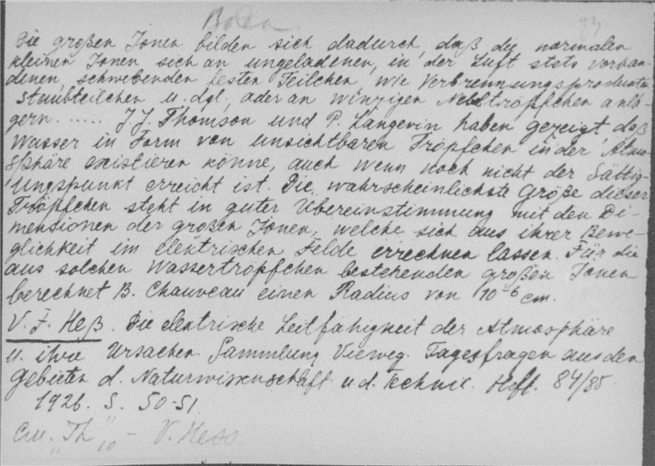 Die großen Jonen bilden sich dadurch, daß die normalen
kleinen Jonen sich an ungeladenen, in der Luft stets vorhan-
denen, schwebenden festen Teilchen, wie Verbrennungsprodukte
Staubteilchen u. dgl., oder an winzigen Nebeltröpfchen anla-
gern. ...... J.J. Thomson und P. Langevin haben gezeigt daß
Wasser in Form von unsichtbaren Tröpfchen in der Atmo-
sphäre existieren könne, auch wenn noch nicht der Sättig-
ungspunkt erreicht ist. Die wahrscheinlichste Größe dieser
Tröpfchen steht in guter Übereinstimmung mit den Di-
mensionen der großen Jonen, welche sich aus ihrer Bewe-
glichkeit im elektrischen Felde errechnen lassen. Für die
aus solchen Wassertröpfchen bestehenden großen Jonen
berechnet B. Chauveau einen Radius von 10⁻⁶ cm.
V. F. Heß. Die elektrische Leitfähigkeit der Atmosphäre
u. ihre Ursachen. Sammlung Vieweg. Tagesfragen aus den
Gebieten d. Naturwissenschaft u. d. Technik. Heft. 84/85
1926. S. 50-51.
"Th" - V. Hess